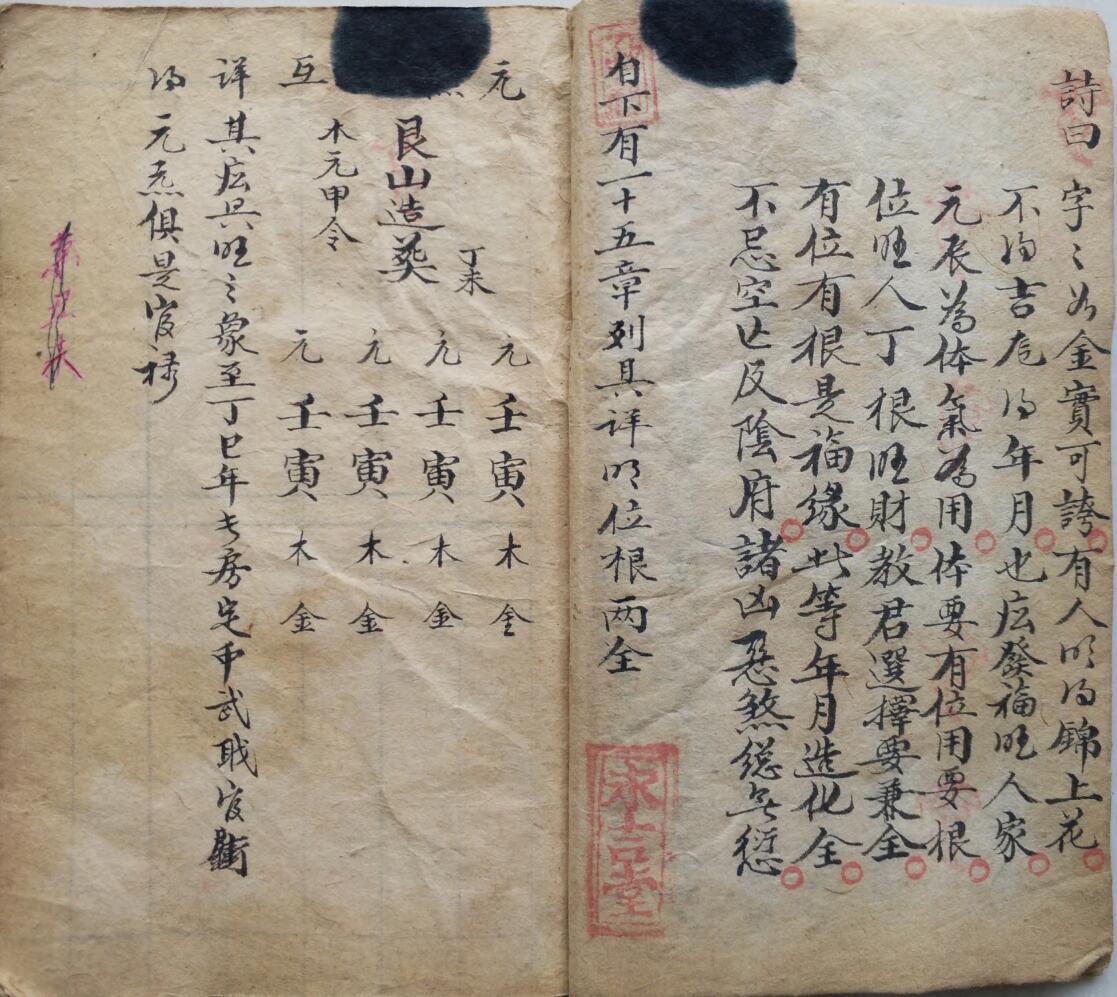 詩曰
字〻如金實可誇有人明得錦上花
不得吉危得年月也应發福旺人家
元辰為体氣為用体要有位用要根
位旺人丁根旺財教君選擇要兼全
有位有根是福缘此等年月造化全
不忌空亡反陰府諸凶惡煞縂無愆
自下有一十五章列具详明位根两全
永吉堂
元
艮山造葵
丁未
木元甲令
互
元壬寅木金
元壬寅木金
元壬寅木金
元壬寅木金
详其应只旺〻象至丁巳年长房宅中武职官衔
得元炁俱是官禄